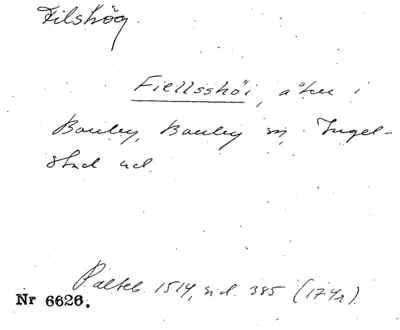 Filshög.
Fiellsshöi, åker i
Bauley, Bauley sn, Ingel-
stad hd.
Palteb. 1514, sid. 385 (17 ).
Nr 6626.